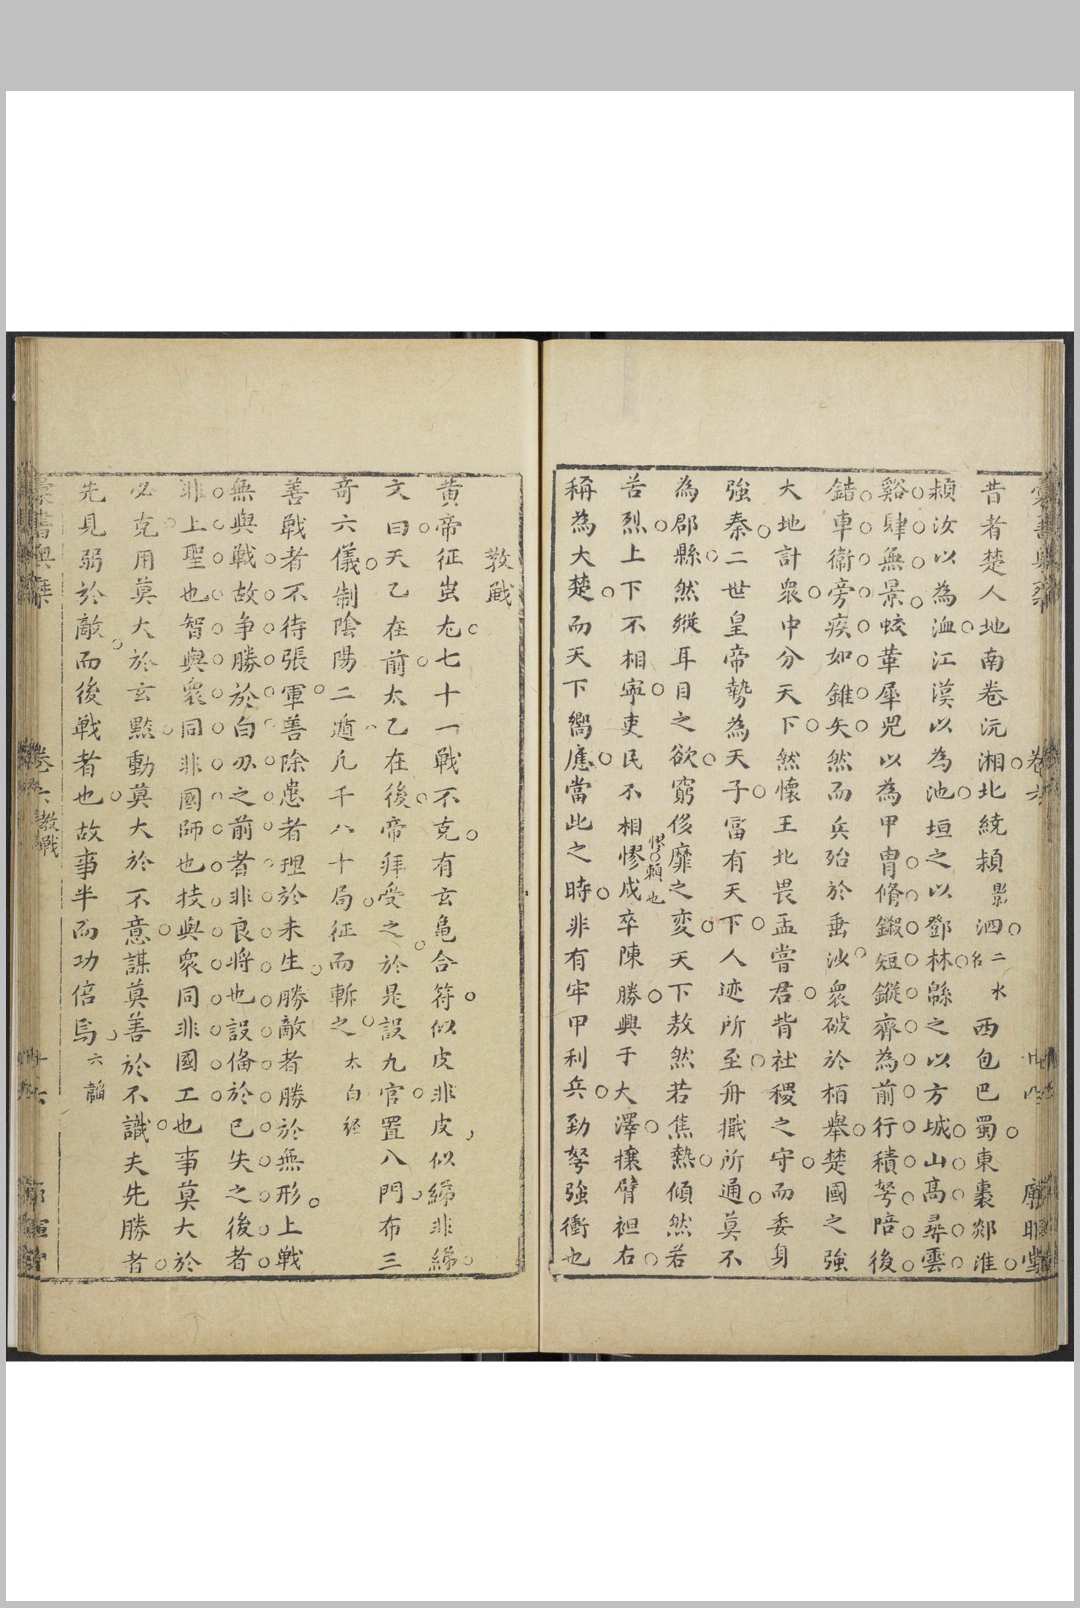 昔者楚人地南卷沅湘北繞潁影泗二水名西包巴蜀東裹郯淮
潁汝以為洫江漢以為池垣之以鄧林緜之以方城山髙尋雲
谿肆無景蛟革犀兕以為甲冑脩鎩短鏦齊為前行積弩陪後
錯車衞旁疾如錐矢然而兵殆於垂沙衆破於栢舉楚國之強
大地計衆中分天下然懷王北畏孟嘗君背社稷之守而委身
強秦二世皇帝勢為天子冨有天下人迹所至舟檝所通莫不
為郡縣然縱耳目之欲窮侈靡之変天下敖然若焦熱傾然若
苦烈上下不相寧吏民不相憀憀賴也戍卒陳勝興于大澤攘臂袒右
稱為大楚而天下嚮應當此之時非有牢甲利兵劲弩強衝也
教戰
黄帝征蚩尤七十一戰不克有玄龜合符似皮非皮似綈非綈
文曰天乙在前太乙在後帝拜受之於是設九宫置八門布三
奇六儀制陰陽二遁凡千八十局征而斬之太白經
善戰者不待張軍善除患者理於未生勝敵者勝於無形上戰
無與戰故争勝於白刃之前者非良将也設備於已失之後者
非上聖也智與衆同非國師也技與衆同非國工也事莫大於
必克用莫大於玄黙動莫大於不意謀莫善於不識夫先勝者
先見弱於敵而後戰者也故事半而功倍焉六韜
卷六 教戰